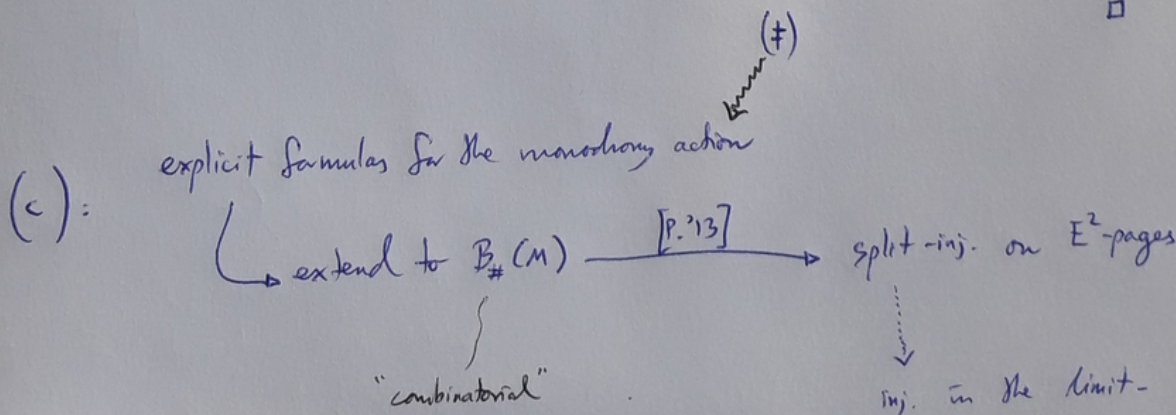 □
(‡)
explicit formulas for the monodromy action
(c):
[P.'13]
extend to B_#(M) split-inj. on E²-pages
"combinatorial"
inj. in the limit-